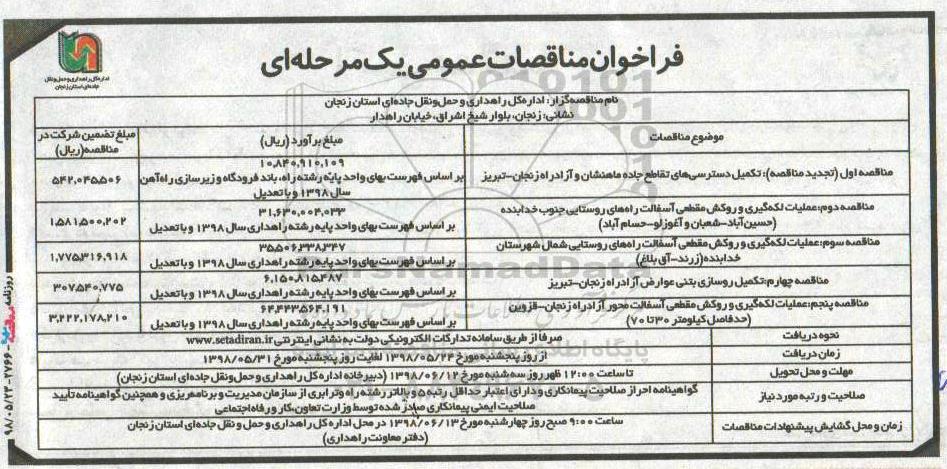 فراخوان مناقصات عمومی یک مرحله‌ای
اداره کل راهداری و حمل ونقل
جاده‌ای استان زنجان
نام مناقصه‌گزار: اداره کل راهداری و حمل ونقل جاده‌ای استان زنجان
نشانی: زنجان، بلوار شیخ اشراق، خیابان راهدار
موضوع مناقصات
مبلغ برآورد (ریال)
مبلغ تضمین شرکت در
مناقصه(ریال)
مناقصه اول (تجدید مناقصه): تکمیل دسترسی‌های تقاطع جاده ماهنشان و آزادراه زنجان-تبریز
۱۰,۸۴۰,۹۱۰,۱۰۹
بر اساس فهرست بهای واحد پایه رشته راه، باند فرودگاه و زیرسازی راه‌آهن
سال ۱۳۹۸ و با تعدیل
۵۴۲,۰۴۵,۵۰۶
مناقصه دوم: عملیات لکه‌گیری و روکش مقطعی آسفالت راه‌های روستایی جنوب خدابنده
(حسین‌آباد-شعبان و آغوزلو-حسام آباد)
۳۱,۶۳۰,۰۰۴,۰۳۳
بر اساس فهرست بهای واحد پایه رشته راهداری سال ۱۳۹۸ و با تعدیل
۱,۵۸۱,۵۰۰,۲۰۲
مناقصه سوم: عملیات لکه‌گیری و روکش مقطعی آسفالت راه‌های روستایی شمال شهرستان
خدابنده (زرند-آق بلاغ)
۳۵,۵۰۶,۳۳۸,۳۴۷
بر اساس فهرست بهای واحد پایه رشته راهداری سال ۱۳۹۸ و با تعدیل
۱,۷۷۵,۳۱۶,۹۱۸
مناقصه چهارم: تکمیل روسازی بتنی عوارض آزادراه زنجان-تبریز
۶,۱۵۰,۸۱۵,۴۸۷
بر اساس فهرست بهای واحد پایه رشته راهداری سال ۱۳۹۸ و با تعدیل
۳۰۷,۵۴۰,۷۷۵
مناقصه پنجم: عملیات لکه‌گیری و روکش مقطعی آسفالت محور آزادراه زنجان-قزوین
(حدفاصل کیلومتر ۳۰ تا ۷۰)
۶۴,۴۴۳,۵۶۴,۱۹۱
بر اساس فهرست بهای واحد پایه رشته راهداری سال ۱۳۹۸ و با تعدیل
۳,۲۲۲,۱۷۸,۲۱۰
نحوه دریافت
صرفا از طریق سامانه تدارکات الکترونیکی دولت به نشانی اینترنتی www.setadiran.ir
زمان دریافت
از روز پنجشنبه مورخ ۱۳۹۸/۰۵/۲۴ لغایت روز پنجشنبه مورخ ۱۳۹۸/۰۵/۳۱
مهلت و محل تحویل
تا ساعت ۱۲:۰۰ ظهر روز سه‌شنبه مورخ ۱۳۹۸/۰۶/۱۲ (دبیرخانه اداره کل راهداری و حمل ونقل جاده‌ای استان زنجان)
صلاحیت و رتبه مورد نیاز
گواهینامه احراز صلاحیت پیمانکاری و دارای اعتبار حداقل رتبه ۵ و بالاتر رشته راه و ترابری از سازمان مدیریت و برنامه‌ریزی و همچنین گواهینامه تایید
صلاحیت ایمنی پیمانکاری صادر شده توسط وزارت تعاون، کار و رفاه اجتماعی
زمان و محل گشایش پیشنهادات مناقصات
ساعت ۹:۰۰ صبح روز چهارشنبه مورخ ۱۳۹۸/۰۶/۱۳ در محل اداره کل راهداری و حمل و نقل جاده‌ای استان زنجان
(دفتر معاونت راهداری)
روزنامه
۹۸/۰۵/۲۲-۲۷۶۶